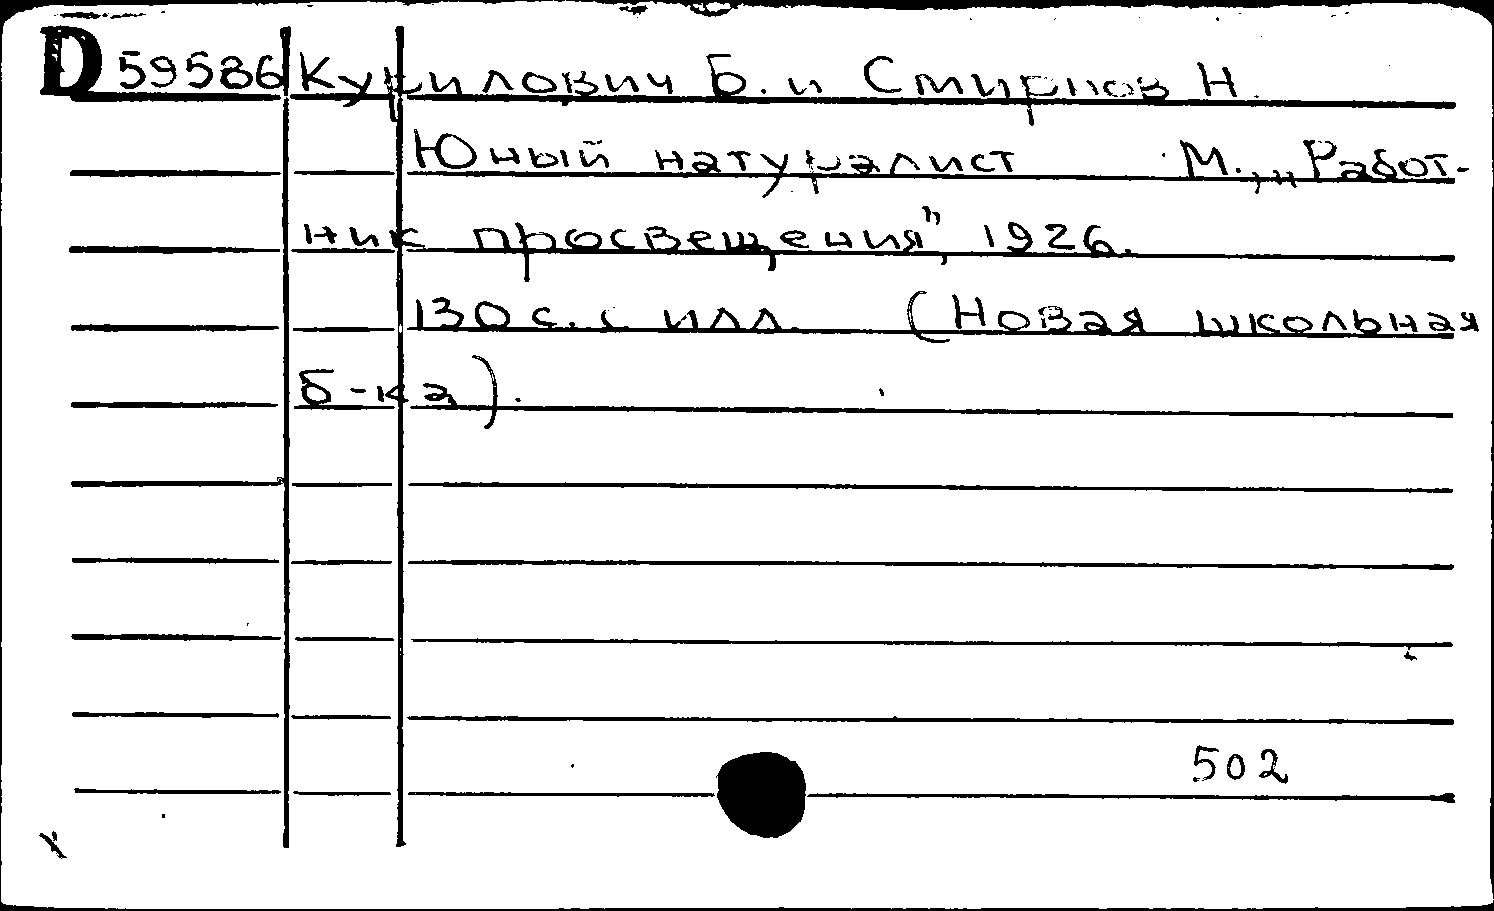 D 59586 Курилович Б. и Смирнов Н.
Юный натуралист М., „Работ-
ник просвещения", 1926.
130 с. с илл. (Новая школьная
б-ка).
502